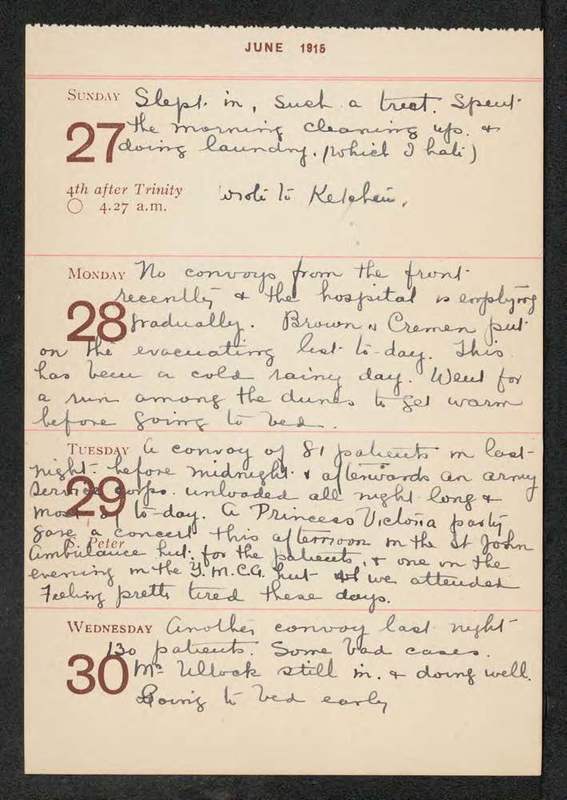 JUNE 1915
SUNDAY Slept in, such a treat. Spent
27 the morning cleaning up &
doing laundry. (which I hate)
4th after Trinity wrote to
4.27 a.m.
MONDAY No convoys from the front
recently & the hospital is emptying
28 gradually. Brown & Cremen put
on the evacuating list to-day. This
has been a cold rainy day. Went for
a run among the dunes to get warm
before going to bed.
TUESDAY A convoy of 81 patients in last
night before midnight & afterwards an army
service corps. unloaded all night long &
29 most of to-day. A Princess Victoria party
gave a concert this afternoon in the St John
S. Peter
Ambulance hut. for the patients, & one in the
evening in the Y.M.C.A. hut we attended
Feeling pretty tired these days.
WEDNESDAY Another convoy last night
130 patients. Some bad cases.
30 Mr Ullock still in. & doing well.
Going to bed early